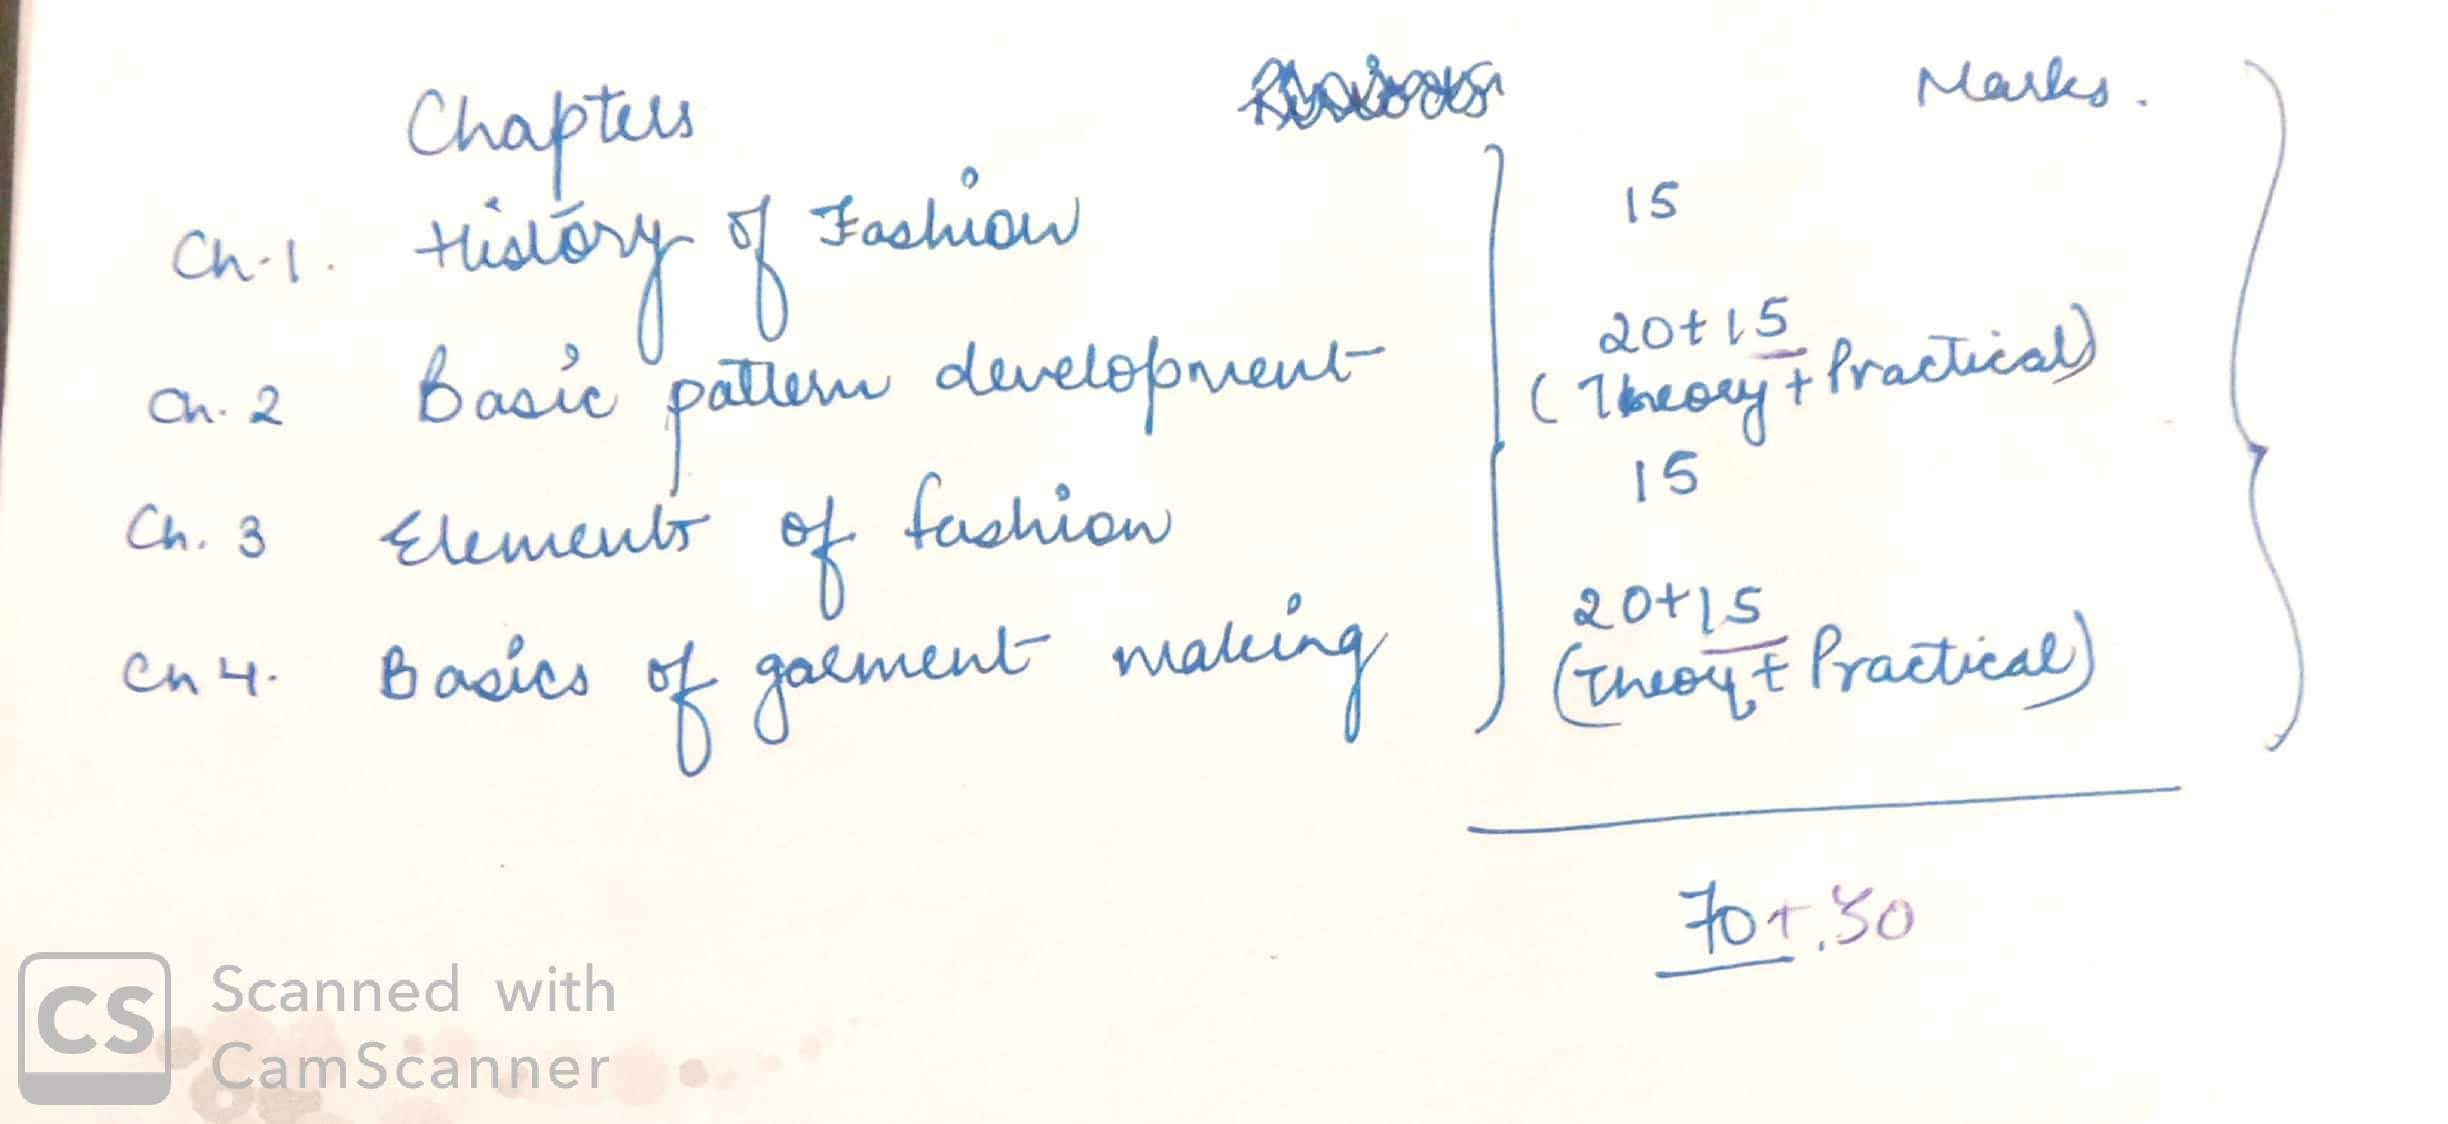 Chapters Marks.
Ch-1. History of Fashion 15
Ch. 2 Basic pattern development 20+15
(Theory + Practical)
Ch. 3 Elements of fashion 15
Ch 4. Basics of garment making 20+15
(Theory + Practical)
70+30
CS Scanned with
CamScanner